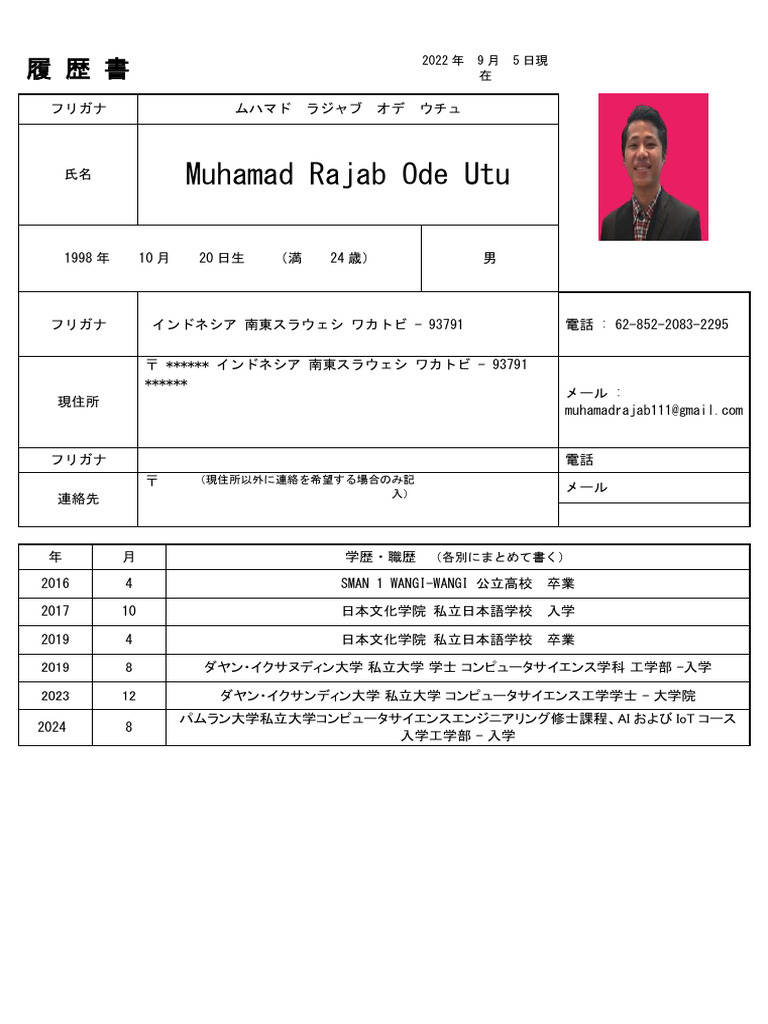 履 歴 書
2022 年 9 月 5 日現
在
フリガナ ムハマド ラジャブ オデ ウチュ
氏名 Muhamad Rajab Ode Utu
1998 年 10 月 20 日生 （満 24 歳） 男
フリガナ インドネシア 南東スラウェシ ワカトビ - 93791 電話 : 62-852-2083-2295
現住所
〒 ****** インドネシア 南東スラウェシ ワカトビ - 93791
******
メール :
muhamadrajab111@gmail.com
フリガナ 電話
連絡先
〒 （現住所以外に連絡を希望する場合のみ記
入）
メール
年 月 学歴・職歴 （各別にまとめて書く）
2016 4 SMAN 1 WANGI-WANGI 公立高校 卒業
2017 10 日本文化学院 私立日本語学校 入学
2019 4 日本文化学院 私立日本語学校 卒業
2019 8 ダヤン・イクサヌディン大学 私立大学 学士 コンピュータサイエンス学科 工学部 -入学
2023 12 ダヤン・イクサンディン大学 私立大学 コンピュータサイエンス工学学士 - 大学院
2024 8
パムラン大学私立大学コンピュータサイエンスエンジニアリング修士課程、AI および IoT コース
入学工学部 - 入学